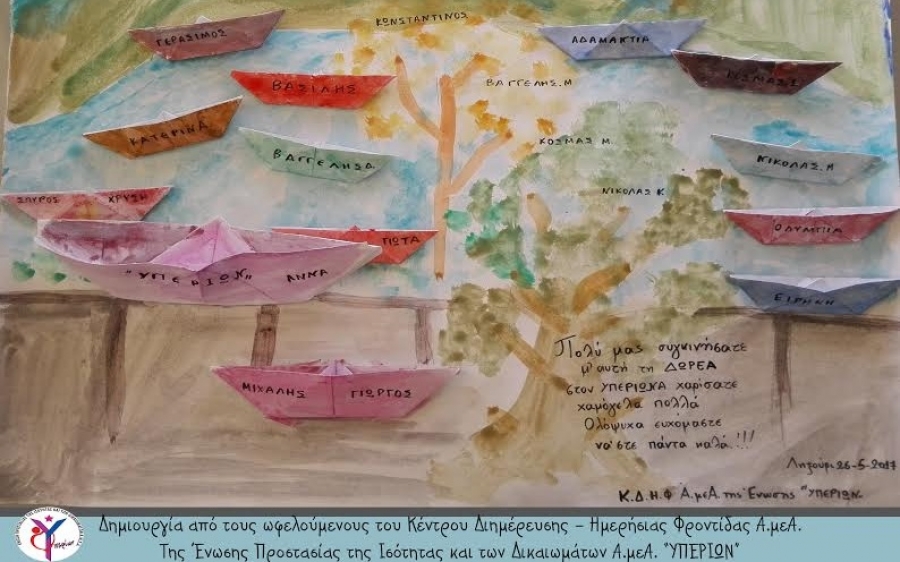 ΚΩΝΣΤΑΝΤΙΝΟΣ
ΓΕΡΑΣΙΜΟΣ
ΑΔΑΜΑΝΤΙΑ
ΒΑΣΙΛΗΣ
ΒΑΓΓΕΛΗΣ.Μ
ΚΟΣΜΑΣ.Σ
ΚΑΤΕΡΙΝΑ
ΒΑΓΓΕΛΗΣ Δ
ΚΟΣΜΑΣ Μ.
ΝΙΚΟΛΑΣ.Μ
ΣΠΥΡΟΣ ΧΡΥΣΗ
ΝΙΚΟΛΑΣ Κ
ΓΙΩΤΑ
ΟΛΥΜΠΙΑ
"ΥΠΕΡΙΩΝ" ΑΝΝΑ
ΕΙΡΗΝΗ
ΜΙΧΑΛΗΣ ΓΙΩΡΓΟΣ
Πολύ μας συγκινήσατε
μ'αυτή τη ΔΩΡΕΑ
στον ΥΠΕΡΙΩΝΑ χαρίσατε
χαμόγελα πολλά
Ολόψυχα ευχόμαστε
να'στε πάντα καλά!!!
Ληξούρι 26-5-2017
Κ.Δ.Η.Φ Α.μεΑ. της Ένωσης "ΥΠΕΡΙΩΝ"
Δημιουργία από τους ωφελούμενους του Κέντρου Διημέρευσης – Ημερήσιας Φροντίδας Α.μεΑ.
Της Ένωσης Προστασίας της Ισότητας και των Δικαιωμάτων Α.μεΑ. "ΥΠΕΡΙΩΝ"